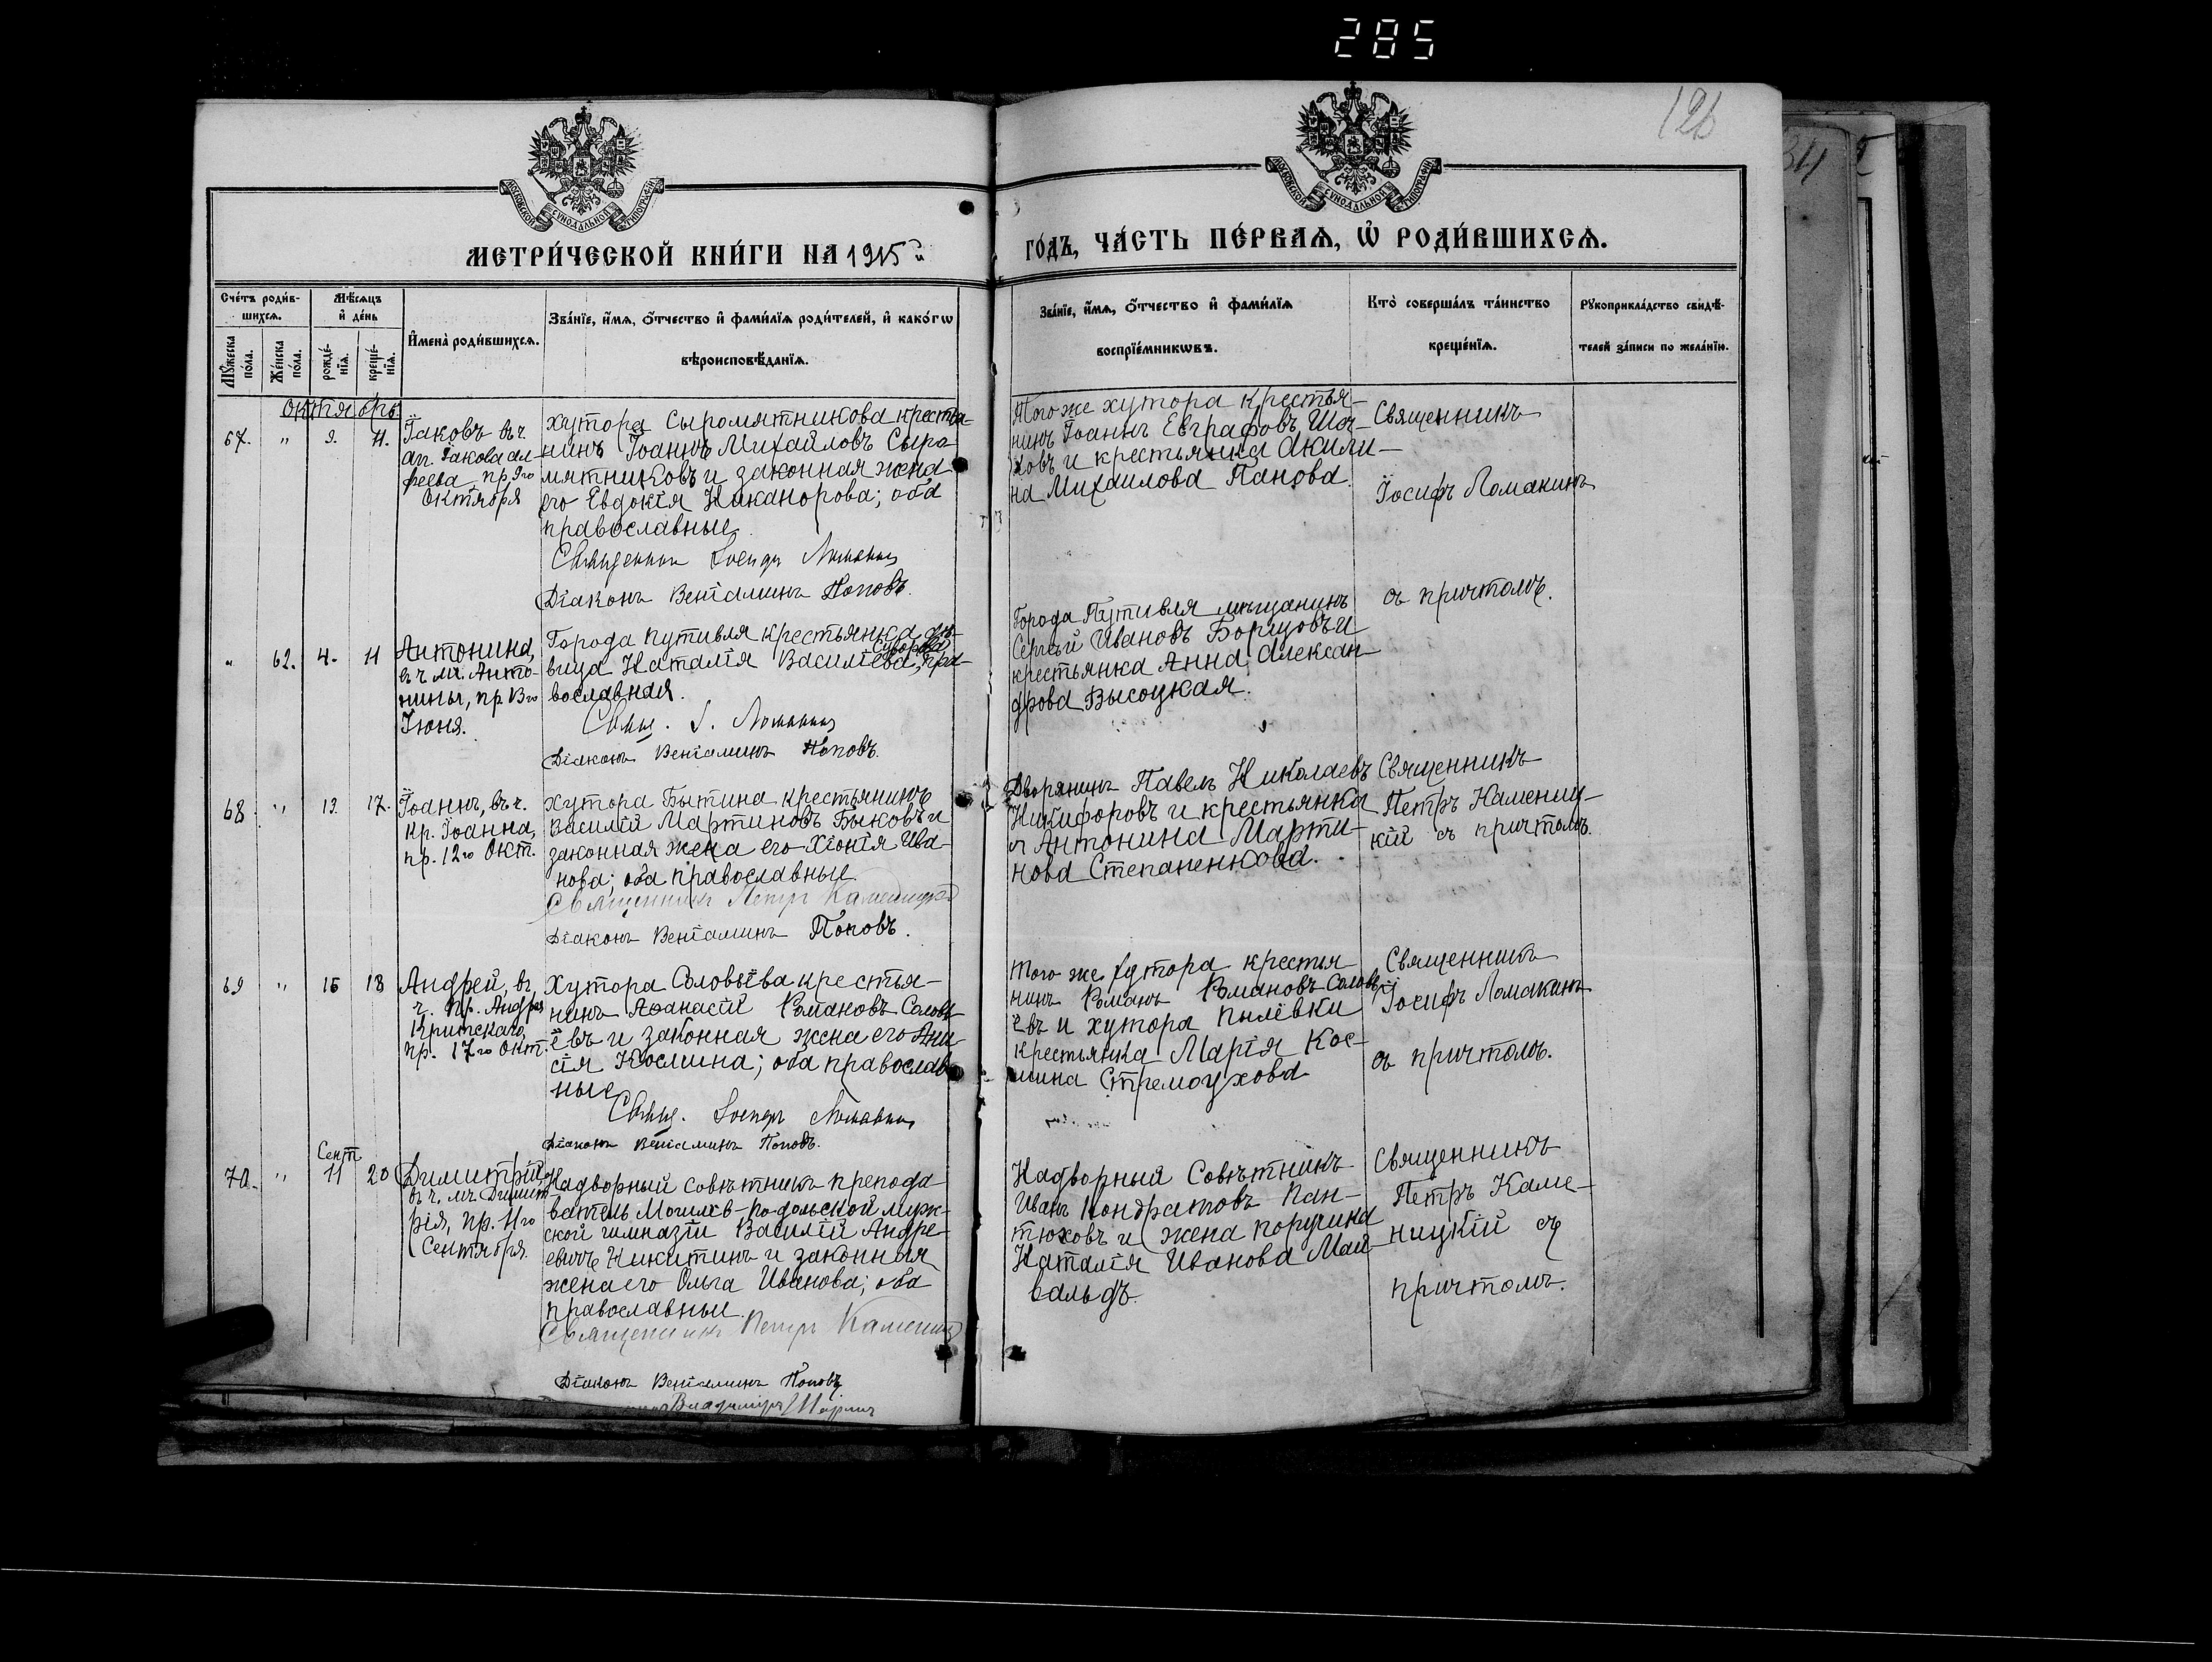 285
126
МОСКОВСКОЙ СѴНОДАЛЬНОЙ ТИПОГРАФІИ
МОСКОВСКОЙ СѴНОДАЛЬНОЙ ТИПОГРАФІИ
МЕТРИ́ЧЕСКОЙ КНИ́ГИ НА 1915й
ГО́ДЪ, ЧА́СТЬ ПЕ́РВАѦ, Ѡ҆ РОДИ́ВШИХСѦ.
Сче́тъ роди́в-
шихсѧ.
Мꙋ́жеска по́ла.
Же́нска по́ла.
Мѣ́сѧцъ
и҆ де́нь
рожде́-
нїѧ.
креще́-
нїѧ.
И҆мена̀ роди́вшихсѧ.
Зва́нїе, и҆́мѧ, ѻ҆́тчество и҆ фами́лїѧ роди́телей, и҆ како́гѡ
вѣроисповѣ́данїѧ.
Зва́нїе, и҆́мѧ, ѻ҆́тчество и҆ фами́лїѧ
воспрїе́мникѡвъ.
Кто̀ соверша́лъ та́инство
креще́нїѧ.
Рꙋкоприкла́дство свидѣ́-
телей за́писи по жела́нїю.
Октябрь
67. " 9. 11.
Іаковъ въ ч.
ап. Іакова ал-
феева пр 9го
Октября
хутора Сыромятникова крестья-
нинъ Іоаннъ Михайловъ Сыро-
мятниковъ и законная жена
его Евдокія Никанорова; оба
православные.
Священникъ Іосифъ Ломакинъ
Діаконъ Веніаминъ Поповъ.
Того же хутора крестья-
нинъ Іоаннъ Евграфовъ
и крестьянка Акили-
на Михаилова Панова.
Священникъ
Іосифъ Ломакинъ
съ причтомъ.
" 62. 4. 11
Антонина,
въ ч. мц. Анто-
нины, пр. 13го
Іюня.
Города Путивля крестьянка дѣ-
вица Наталія Василіева Суворова, пра-
вославная.
Свящ. І. Ломакинъ
Діаконъ Веніаминъ Поповъ.
Города Путивля мѣщанинъ
Сергѣй Ивановъ Борцовъ и
крестьянка Анна Алексан-
дрова Высоцкая.
68. " 13. 17.
Іоаннъ, въ ч.
кр. Іоанна,
пр. 12го Окт.
Хутора Бытина крестьянинъ
Василій Мартиновъ Быковъ и
законная жена его Хіонія Ива-
нова; оба православные
Священникъ Петръ Каменицкій
Діаконъ Веніаминъ Поповъ.
Дворянинъ Павелъ Николаевъ
Никифоровъ и крестьянка
Антонина Марти-
нова Степаненкова.
Священникъ
Петръ Камениц-
кій съ причтомъ.
69 " 15 18
Андрей, въ
ч. пр. Андрея
Критскаго,
пр. 17го Окт.
Хутора Соловьёва крестья-
нинъ Аѳанасій Романовъ Соловь-
ёвъ и законная жена его Ани-
сія Космина; оба православ-
ные
Свящ. Іосифъ Ломакинъ
Діаконъ Веніаминъ Поповъ.
Того же хутора крестья
нинъ Романъ Романовъ Соловь-
ёвъ и хутора Пылёвки
крестьянка Марія Кос-
мина Стремоухова
Священникъ
Іосифъ Ломакинъ
съ причтомъ.
Сент.
70. " 11 20
Димитрій
въ ч. мч. Димит
рія, пр. 11го
Сентября.
Надворный совѣтникъ препода-
ватель Могилев-Подольской муж-
ской гимназіи Василій Андре-
евичъ Никитинъ и законная
жена его Ольга Иванова; оба
православные.
Священникъ Петръ Каменицкій
Діаконъ Веніаминъ Поповъ
Владиміръ
Надворный Совѣтникъ
Иванъ Кондратовъ Пан-
тюховъ и жена поручика
Наталія Иванова Май-
вальдъ.
Священникъ
Петръ Каме-
ницкій съ
причтомъ.